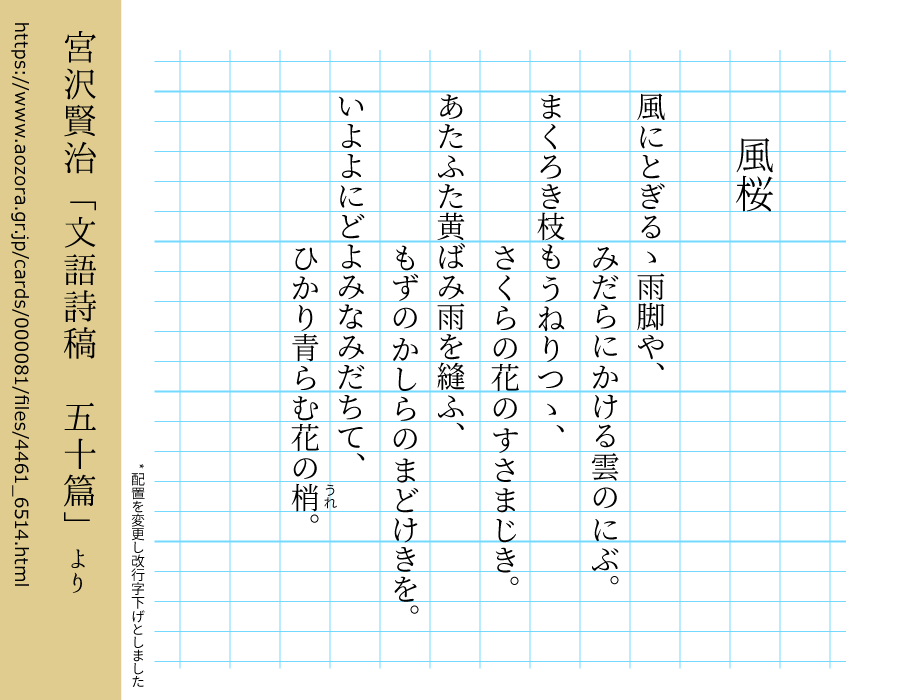 風桜
風にとぎるゝ雨脚や、
みだらにかける雲のにぶ。
まくろき枝もうねりつゝ、
さくらの花のすさまじき。
あたふた黄ばみ雨を縫ふ、
もずのかしらのまどけきを。
いよよにどよみなみだちて、
ひかり青らむ花の梢。
うれ
*配置を変更し改行字下げとしました
宮沢賢治「文語詩稿　五十篇」より
https://www.aozora.gr.jp/cards/000081/files/4461_6514.html